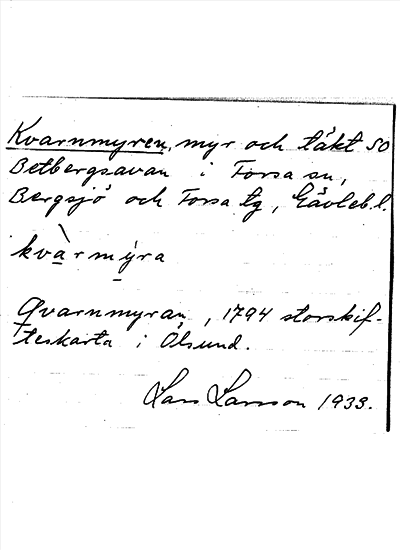 Kvarnmyren, myr och täkt SO
Betbergsavan i Forsa sn,
Bergsjö och Forsa tg, Gävleb. l.
kvàrmýra
Qvarnmyran, 1794 storskif-
teskarta i Ölsund.
Lars Larsson 1933.